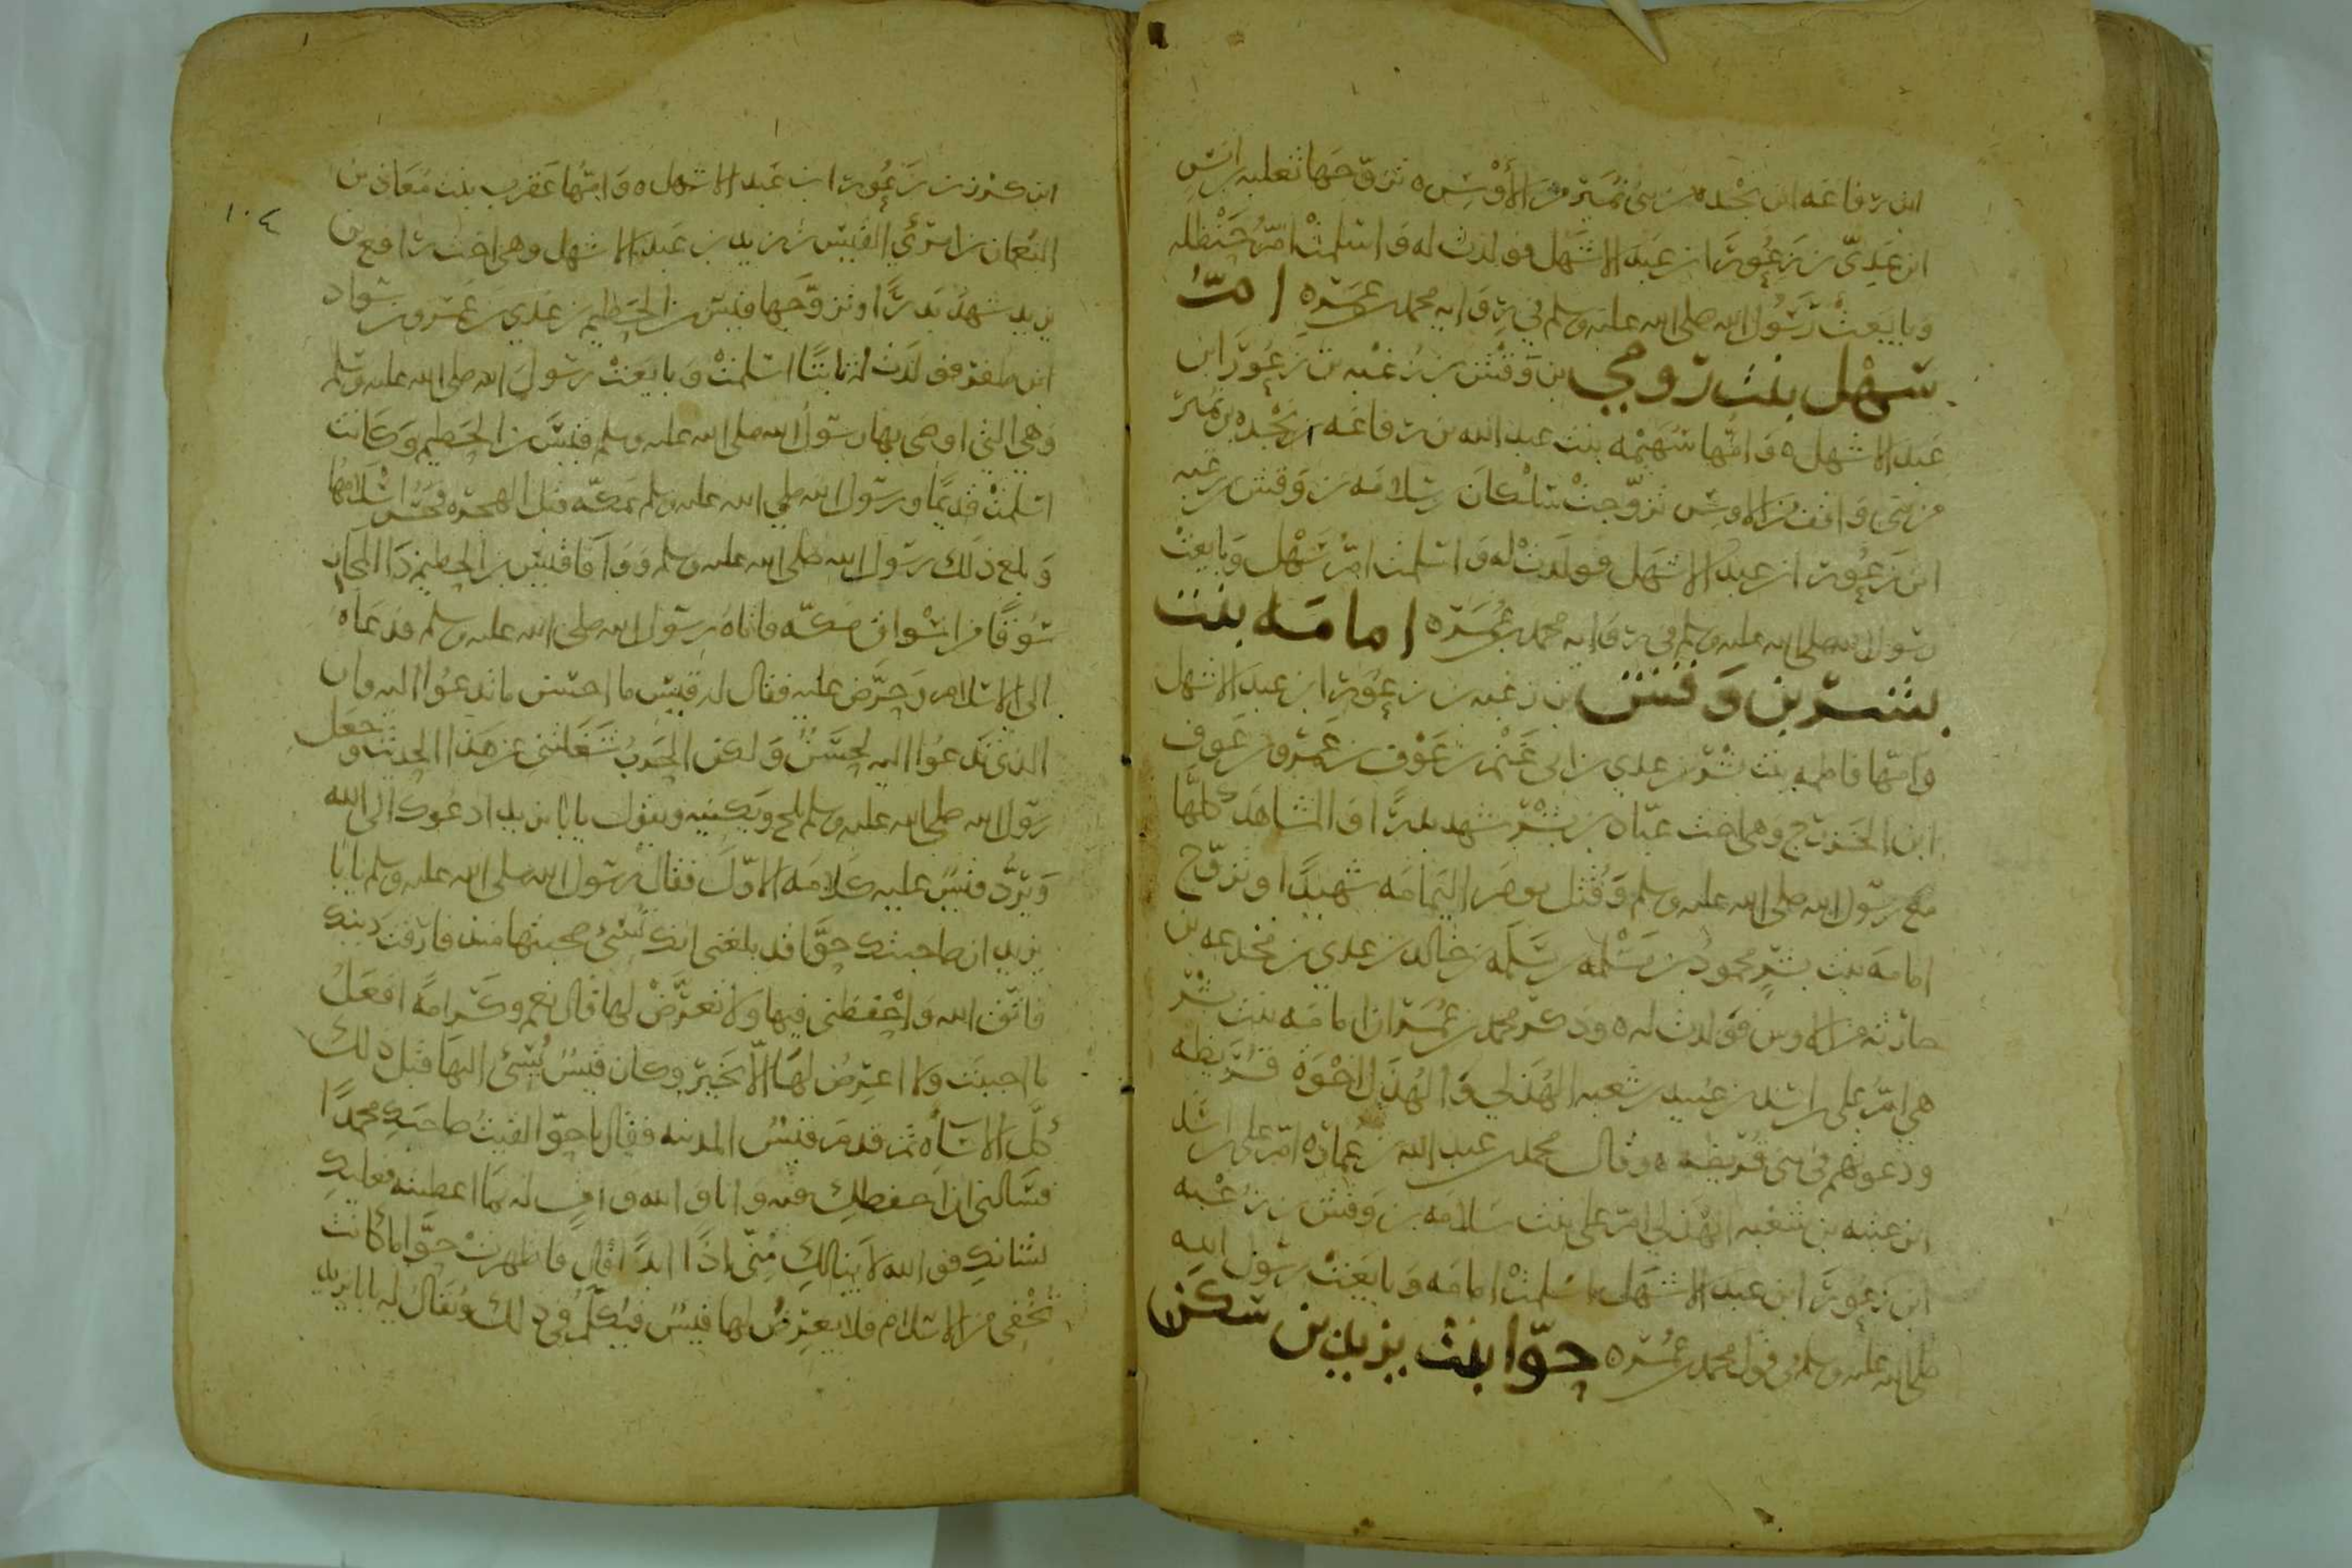 ابن رفاعه ابن نجده من بني نمير من الأوس ٥ تزوجها ثعلبه ابن انس
ابن عدي بن زعورا ابن عبد الاشهل فولدت له واسلمت ام حنظله
وبايعت رسول الله صلى الله عليه وسلم في روايه محمد بن عمره ام
سهل بنت رومي بن وقش بن زغبه بن زعورا ابن
عبد الاشهل ٥ وامها سهيمه بنت عبد الله بن رفاعه بن نجده بن نمير
من بني واقف من الاوس تزوجت سلكان بن سلامه بن وقش بن زغبه
ابن زعورا ابن عبد الاشهل فولدت له واسلمت ام سهل وبايعت
رسول الله صلى الله عليه وسلم في روايه محمد بن عمره امامه بنت
بشر بن وقش بن زغبه بن زعورا ابن عبد الاشهل
وامها فاطمه بنت بشر بن عدي بن ابي غنم بن عوف بن عمرو بن عوف
ابن الخزرج وهي اخت عباد بن بشر شهد بدرا والمشاهد كلها
مع رسول الله صلى الله عليه وسلم وقتل يوم اليمامه شهيدا وتزوج
امامه بنت بشر محمود بن مسلمه بن سلمه بن خالد بن عدي بن مجدعه بن
حارثه من الاوس فولدت له ٥ وذكر محمد بن عمر ان امامه بنت بشر
هي ام علي بن اسد بن عبيد بن شعبه الهدلي والهدل اخوة قريظه
ودعوتهم في بني قريظه ٥ وقال محمد بن عبد الله بن عماره ام علي بن اسد
ابن عبيد بن شعبه الهدلي ام علي بنت سلامه بن وقش بن زغبه
ابن زعورا ابن عبد الاشهل اسلمت امامه وبايعت رسول الله
صلى الله عليه وسلم في قول محمد بن عمره حوا بنت يزيد بن سكن
١٠٤
ابن كرز بن زعورا ابن عبد الاشهل ٥ وامها عقرب بنت معاذ بن
النعمان بن امرئ القيس بن زيد بن عبد الاشهل وهي اخت رافع بن
يزيد شهد بدرا وتزوجها قيس بن الخطيم بن عدي بن عمرو بن سواد
ابن ظفر فولدت له ثابتا اسلمت وبايعت رسول الله صلى الله عليه وسلم
وهي التي اوصى بها رسول الله صلى الله عليه وسلم قيس بن الخطيم وكانت
اسلمت قديما ورسول الله صلى الله عليه وسلم بمكه قبل الهجره فحسن اسلامها
وبلغ ذلك رسول الله صلى الله عليه وسلم ووافا قيس بن الخطيم ذا المجاز
سوقا من اسواق مكه فاتاه رسول الله صلى الله عليه وسلم فدعاه
الى الاسلام وحرض عليه فقال له قيس ما احسن ما تدعوا اليه وان
الذي تدعوا اليه لحسن ولكن الحرب شغلتني عن هذا الحديث وجعل
رسول الله صلى الله عليه وسلم يلح ويكنيه ويقول يابا يزيد ادعوك الى الله
ويرد قيس عليه كلامه الاول فقال رسول الله صلى الله عليه وسلم يابا
يزيد ان صاحبتك حوا قد بلغني انك تسئ صحبتها منذ فارقت دينك
فاتق الله واحفظني فيها ولا تعرض لها قال نعم وكرامه افعل
ما احببت ولا اعرض لها الا بخير وكان قيس يسئ اليها قبل ذلك
كل الاساه ثم قدم قيس المدينه فقال يا حوا لقيت صاحبك محمدا
فسالني ان احفظك فيه وانا والله واف له بما اعطيته فعليك
بشانك فوالله لا ينالك مني اذا ابدا قال فاظهرت حوا ما كانت
تخفي من الاسلام فلا يعرض لها قيس فيكلم في ذلك ويقال له يابا يزيد